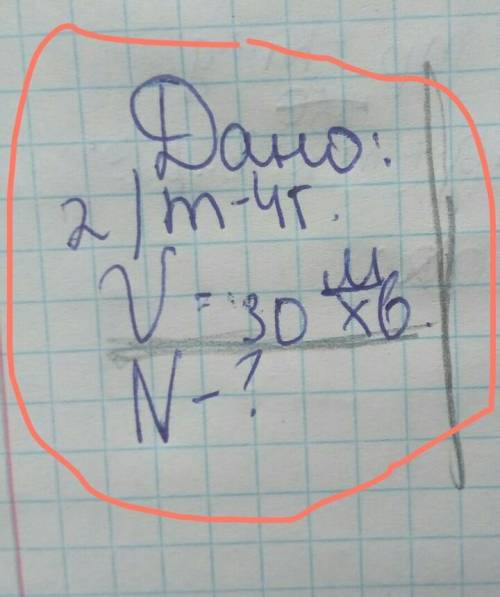 Дано:
2) m-4г.
V = 30 м/хв.
N-?